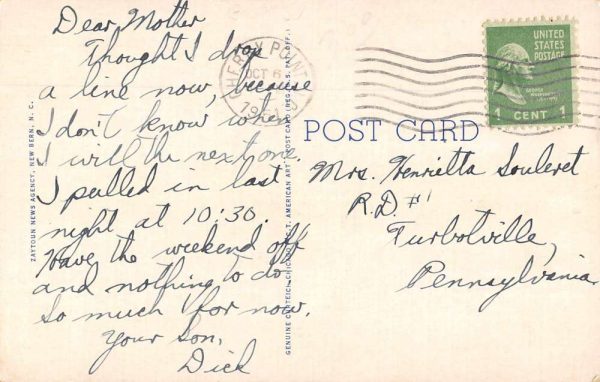 Dear Mother
Thought I drop
a line now, because
I don't know when
I will the next one.
I pulled in last
night at 10:30.
Have the weekend off
and nothing to do
so much for now.
Your Son,
Dick
ZAYTOUN NEWS AGENCY, NEW BERN, N. C.
GENUINE CURTEICH-CHICAGO "C.T. AMERICAN ART" POST CARD (REG. U.S. PAT. OFF.)
CHERRY POINT
OCT 6
POST CARD
UNITED
STATES
POSTAGE
GEORGE
WASHINGTON
1 CENT 1
Mrs. Henrietta Souleret
R.D. #1
Turbotville,
Pennsylvania